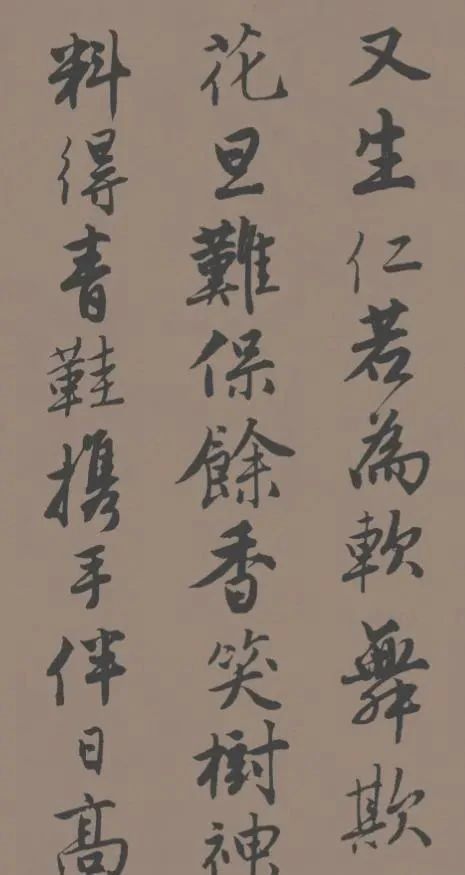 又生仁若為軟舞欺
花旦難保餘香笑樹神
料得青鞋攜手伴日高